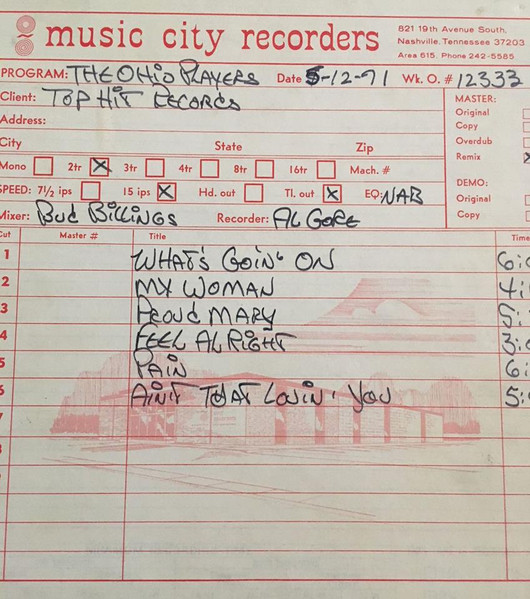 music city recorders
821 19th Avenue South,
Nashville, Tennessee 37203
Area 615, Phone 242-5585
PROGRAM: THE OHIO PLAYERS Date 5-12-71 Wk. O. # 12333
Client: TOP HIT RECORDS
MASTER:
Address:
Original
Copy
City State Zip
Overdub
Mono 2tr 3tr 4tr 8tr 16tr Mach. #
Remix
DEMO:
SPEED: 7½ ips 15 ips Hd. out Tl. out EQ: NAB
Original
Mixer: BUD BILLINGS Recorder: AL GORE
Copy
Cut Master # Title Time
1 WHAT'S GOIN' ON 6:
2 MY WOMAN 4:
3 PROUD MARY 5:
4 FEEL ALRIGHT 3:
5 PAIN 6:
6 AIN'T THAT LOVIN' YOU 5:
7
8
9
10
11
12